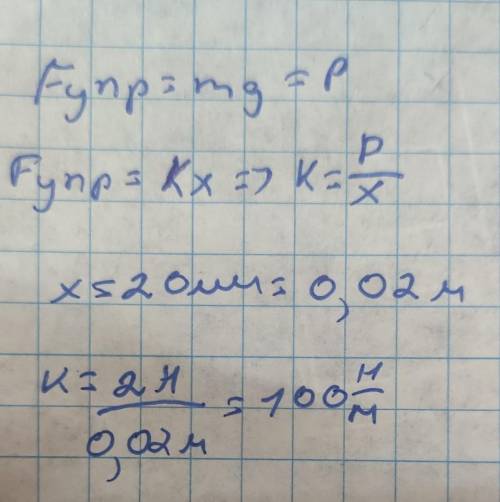 Fупр = mg = P
Fупр = Kx => K = P/x
x = 20мм = 0,02 м
K = 2Н/0,02м = 100 Н/м